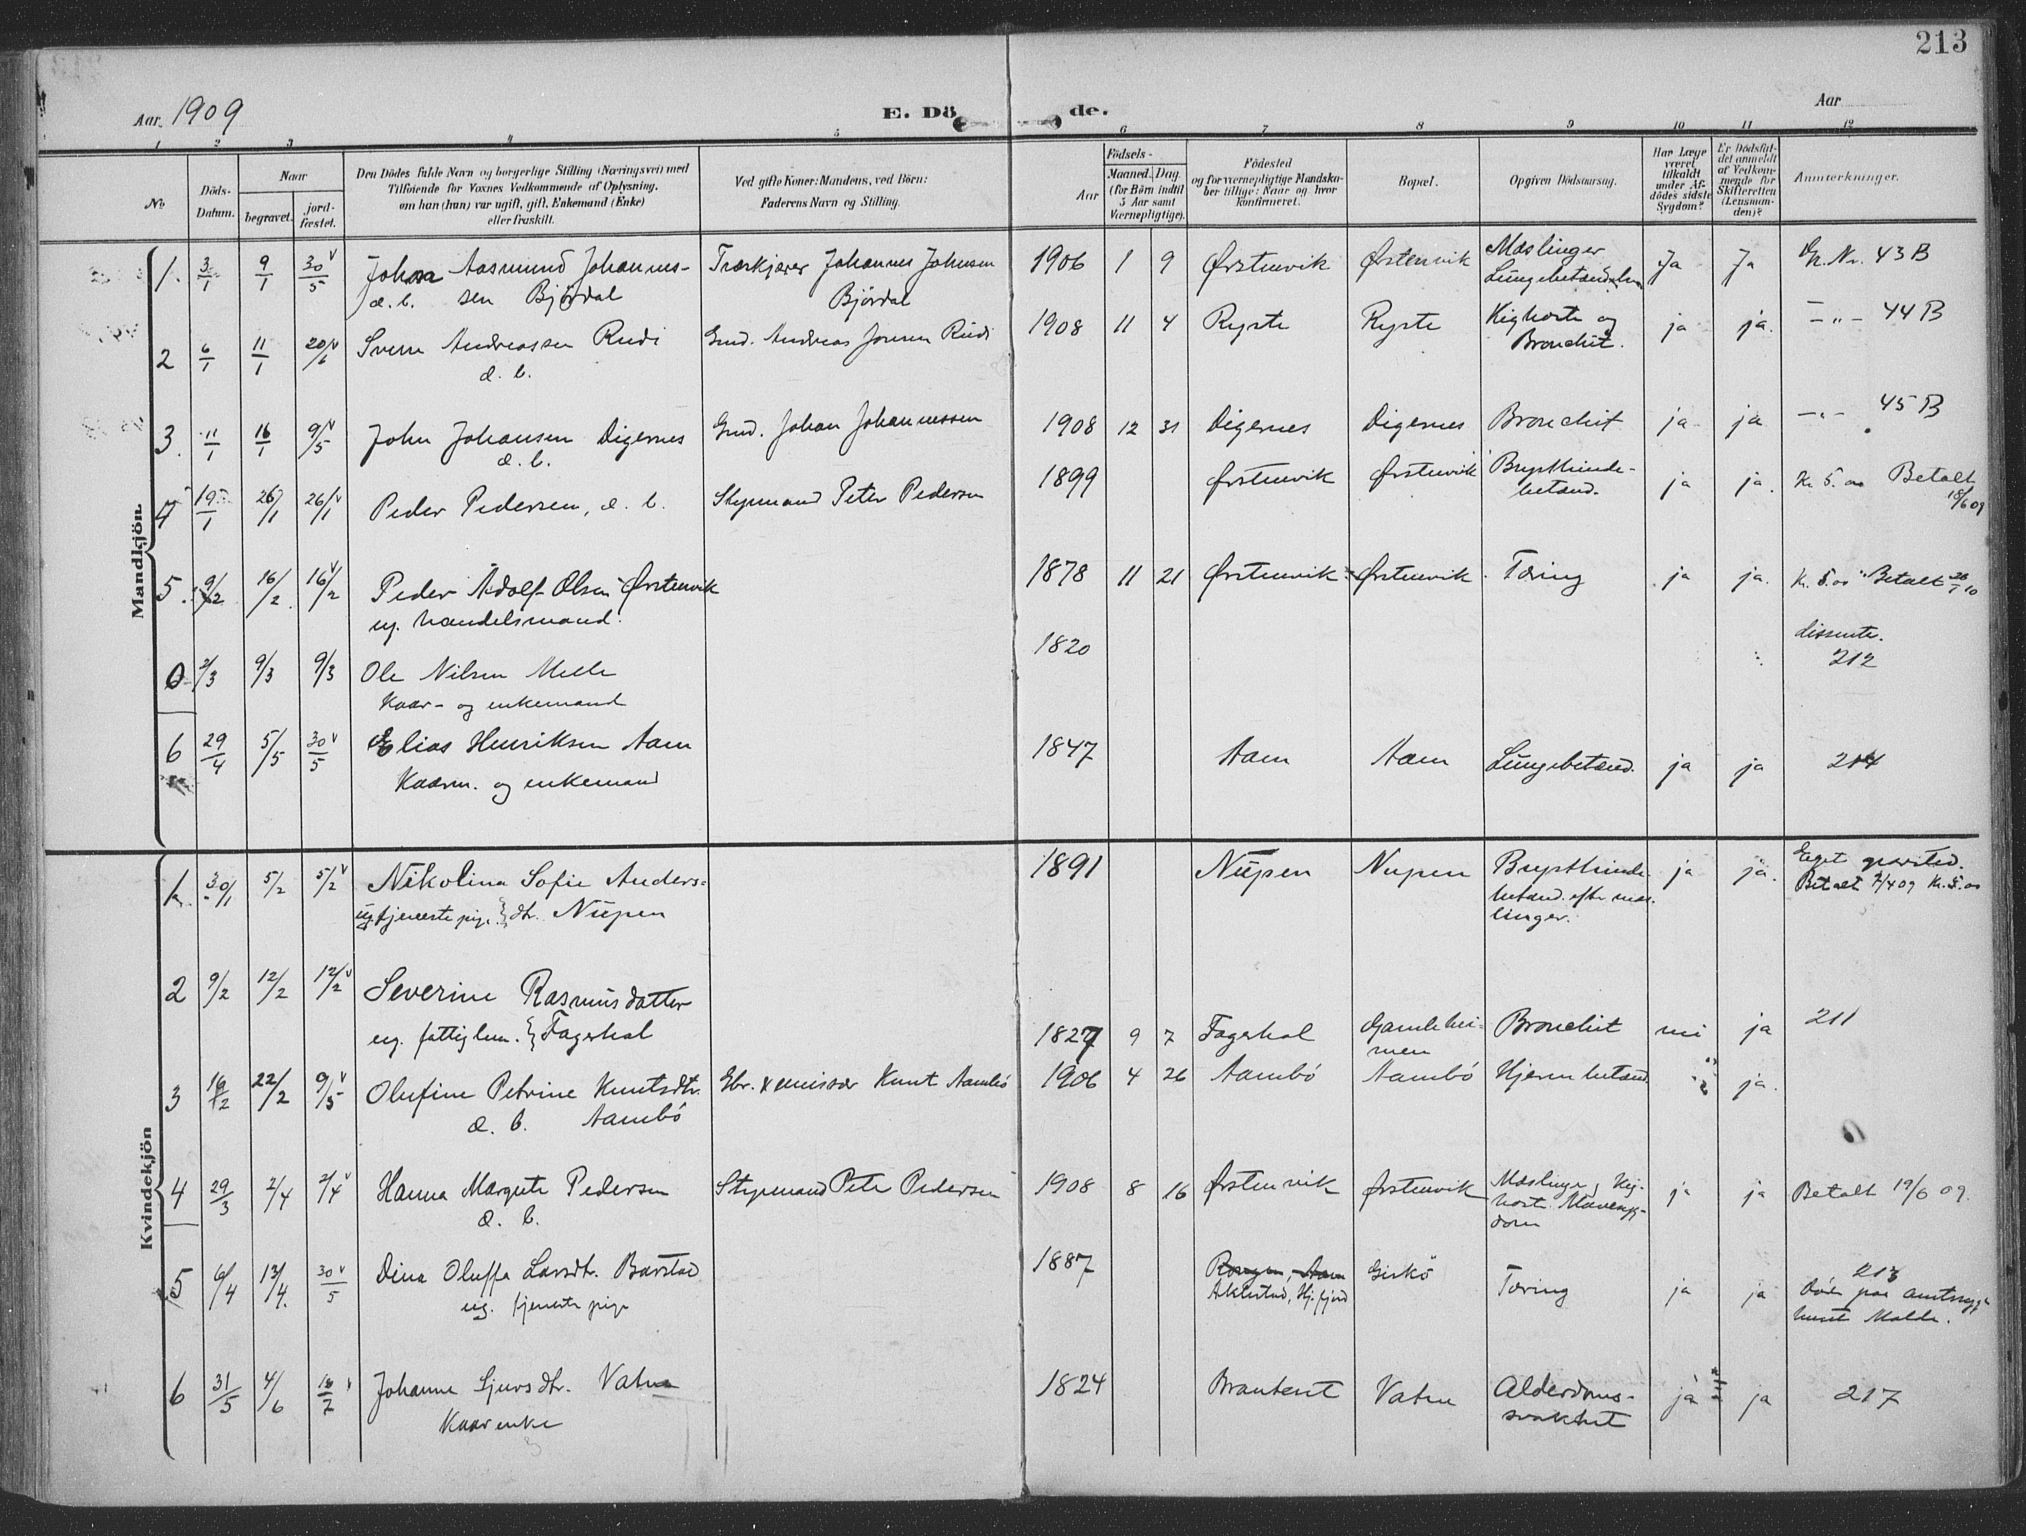 213
Aar. 1909
E. Dö de.
Aar
1 2 3 4 5 6 7 8 9 10 11 12
No
Döds-
Datum.
Naar
begravet.
jord-
fæstet.
Den Dödes fulde Navn og borgerlige Stilling (Næringsvei) med
Tilföiende for Voxnes Vedkommende af Oplysning.
om han (hun) var ugift, gift, Enkemand (Enke)
eller fraskilt.
Ved gifte Koner: Mandens, ved Börn:
Faderens Navn og Stilling.
Födsels-
Aar
Maaned. Dag
(for Börn indtil
5 Aar samt
Værnepligtige).
Födested
og for værnepligtige Mandska-
ber tillige: Naar og hvor
konfirmeret.
Bopæl.
Opgiven Dödsaarsag.
Har Læge
været
tilkaldt
under Af-
dödes sidste
Sygdom?
Er Dödsfal-
det anmeldt
af Vedkom-
mende for
Skifteretten
(Lensman-
den)?
Anmærkninger.
Mandkjön.
1. 3/1 9/1 30/5 Johan Aasmund Johannes- Træskjærer Johannes Johnsen 1906 1 9 Ørstenvik Ørstenvik Mæslinger Ja Ja Gr. Nr. 43 B
d. b. sen Bjørdal Bjørdal Lungebetændelse
2 6/1 11/1 20/6 Svein Andreassen Rudi Gmd. Andreas Jonsen Rudi 1908 11 4 Ryste Ryste Kighoste og ja ja. -„- 44 B
d. b. Bronchit.
3. 11/1 16/1 9/5 John Johansen Digernes Gmd. Johan Johannessen 1908 12 31 Digernes Digernes Bronchit ja ja -„- 45 B
d. b.
4 19/1 26/1 26/1 Peder Pedersen, d. b. Styrmand Peter Pedersen 1899 Ørstenvik Ørstenvik Brysthinde- ja ja. Kr. 5.00 Betalt
betænd. 18/6 09
5. 9/2 16/2 16/2 Peder Adolf Olsen Ørstenvik 1878 11 21 Ørstenvik Ørstenvik Tæring ja ja. Kr. 5.00 Betalt 10
ug. handelsmand.
0 2/3 9/3 9/3 Ole Nilsen Melle 1820 dissenter.
Kaar- og enkemand 212
6 29/4 5/5 30/5 Elias Henriksen Aam 1847 Aam Aam Lungebetænd. ja ja 214
Kaarm. og enkemand
Kvindekjön
1. 30/1 5/2 5/2 Nikolina Sofie Anders- 1891 Nupen Nupen Brysthinde- ja ja. Eget gravsted.
ug. tjenestepige } dtr. Nupen betænd. efter mæs- Betalt 7/4 09 Kr. 5.00
linger.
2 9/2 12/2 12/2 Severine Rasmusdatter
ug. fattiglem. } Fagerhol 1827 9 7 Fagerhol Gamlehei- Bronchit nei ja 211
men
3 16/2 22/2 9/5 Olufine Petrine Knutsdtr. Gbr. x emissær Knut Aambö 1906 4 26 Aambö Aambö Hjernebetænd. ja.
d. b. Aambö
4 29/3 2/4 2/4 Hanna Margrete Pedersen Styrmand Peter Pedersen 1908 8 16 Ørstenvik Ørstenvik Mæslinger, Kig- ja ja Betalt 19/6 09.
d. b. hoste. Mavesyg-
dom
5 6/4 13/4. 30/5 Dina Oluffa Larsdtr. Barstad 1887 Rongen, Aam Giskö Tæring ja ja 213
ug. tjenestepige Aklestad, Hj.fjord Död paa amtssyge-
huset Molde.
6 31/5 4/6 18/7 Johanne Sjursdtr. Vatne 1824 Brauteset Vatne Alderdoms- ja ja 217
Kaarenke svakhet